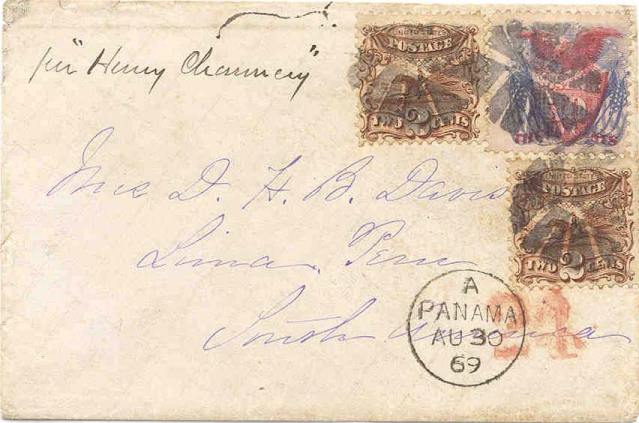 per "Henry Chauncey"
UNITED STATES
POSTAGE
TWO 2 CENTS
UNITED STATES
POSTAGE
TWO 2 CENTS
D. H. B. Davis
Lima. Peru
South America
24
A
PANAMA
AU 30
69